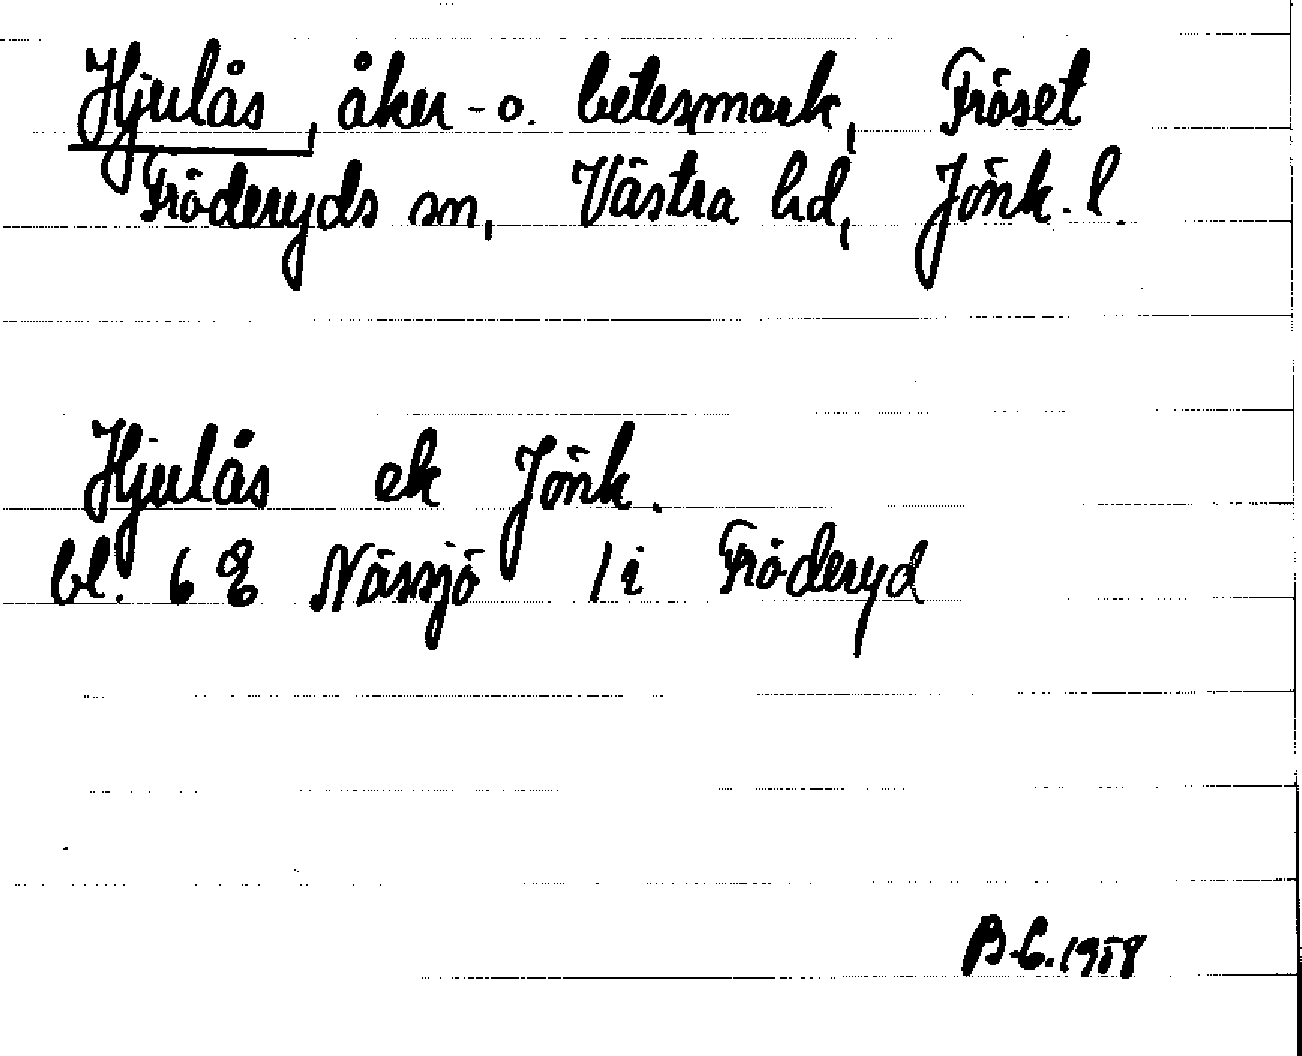 Hjulås, åker- o. betesmark, Fröset
Fröderyds sn, Västra hd, Jönk. l.
Hjulås ek Jönk.
bl. 6 E Nässjö 1 i Fröderyd
B-C. 1958